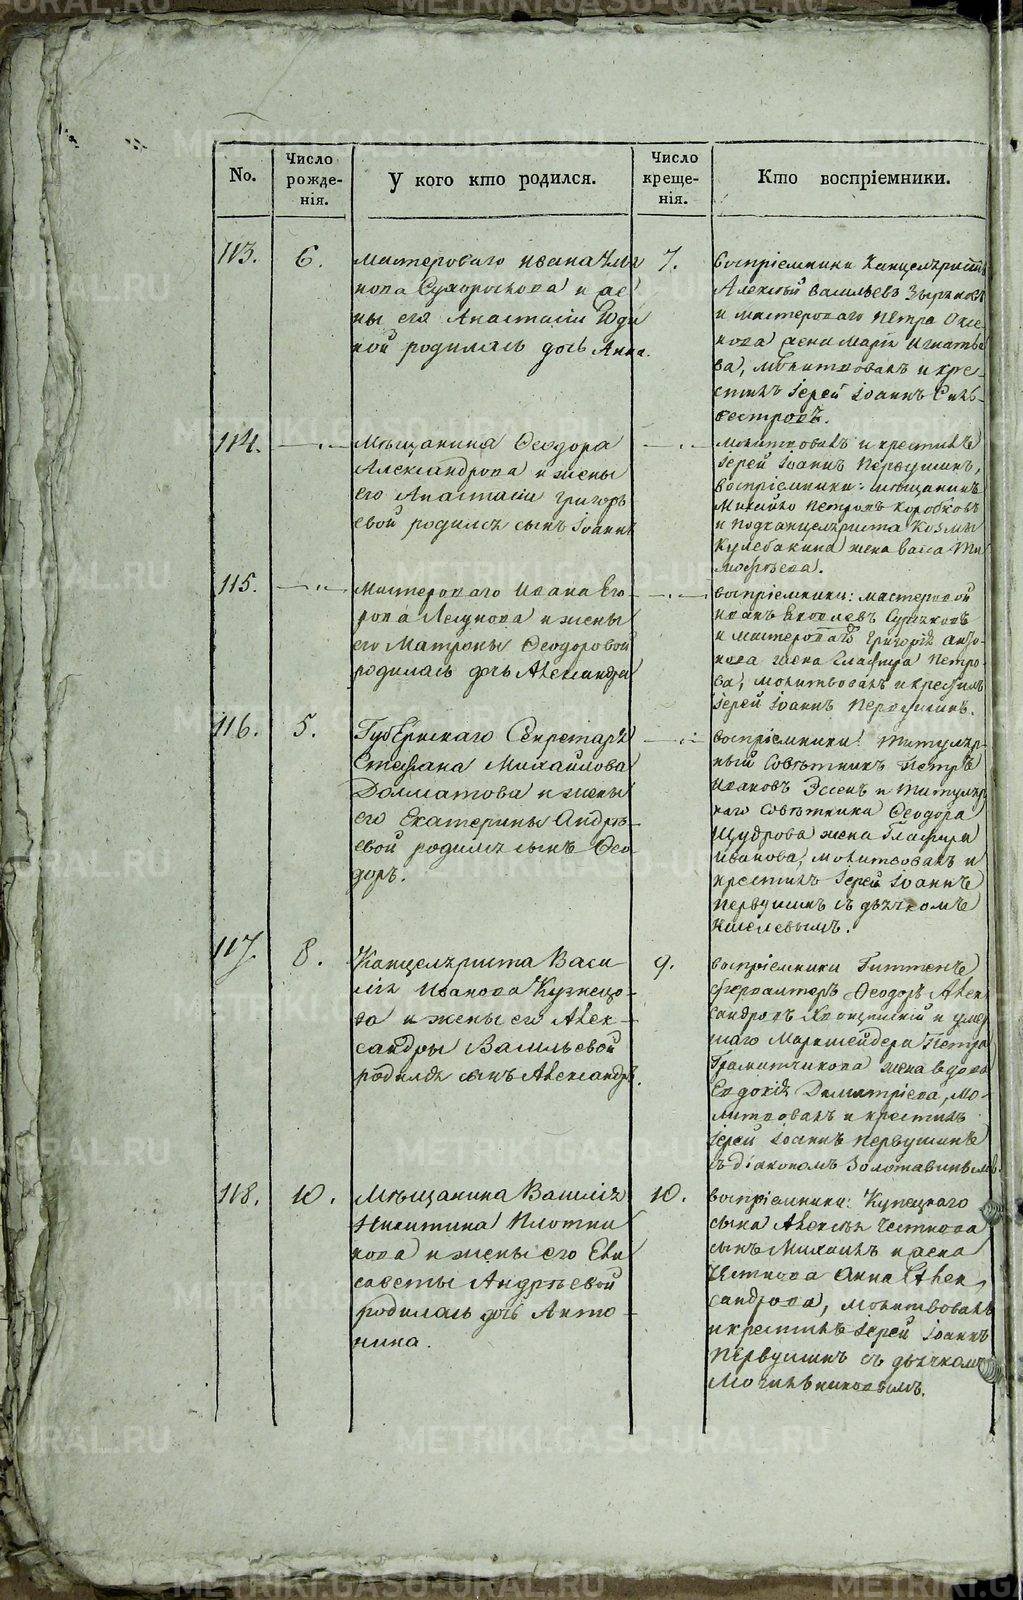 No.
Число рожде-нія.
У кого кто родился.
Число креще-нія.
Кто воспріемники.
113.
6.
Мастероваго Ивана
и же
ны его Анастасіи
ной родилась дочь Анна.
7.
воспріемники Канцеляристъ
Алексѣй Васильевъ Зыряновъ
и мастероваго Петра
жена Марія Игнатье
ва, молитвовалъ и кре-
стилъ Іерей Іоаннъ Силь-
вестровъ.
114.
Мѣщанина Ѳеодора
Александрова и жены
его Анастасіи Григорь
евой родился сынъ Іоаннъ
молитвовалъ и крестилъ
Іерей Іоаннъ Первушинъ,
воспріемники: мѣщанинъ
Михайло Петровъ Коробковъ
и подканцеляриста Козмы
Кулебакина жена Васса Ти
мофѣева.
115.
Мастероваго Ивана Его
рова и жены
его Матроны Ѳеодоровой
родилась дочь Александра
воспріемники: мастеровой
Иванъ Яковлевъ
и мастероваго Григорія
жена Глафира Петро
ва, молитвовалъ и крестилъ
Іерей Іоаннъ Первушинъ.
116.
5.
Губернскаго Секретаря
Стефана Михайлова
Долматова и жены
его Екатерины Андрѣ
евой родился сынъ Ѳео
доръ.
воспріемники: Титуляр-
ный Совѣтникъ Петръ
Ивановъ Эссенъ и Титуляр
наго Совѣтника Ѳеодора
Щудрова жена Глафира
Иванова, молитвовалъ и
крестилъ Іерей Іоаннъ
Первушинъ съ дьячкомъ
Киселевымъ.
117.
8.
Канцеляриста Васи
лія Иванова Кузнецо-
ва и жены его Алек-
сандры Васильевой
родился сынъ Александръ.
9.
воспріемники Гиттенъ
фервалтеръ Ѳеодоръ Алек
сандровъ и умер
шаго Маркшейдера Петра
Грамматчикова жена вдова
Евдокія Димитріева, мо-
литвовалъ и крестилъ
Іерей Іоаннъ Первушинъ
съ діакономъ Золотавинымъ.
118.
10.
Мѣщанина Василія
Никитина Плотни
кова и жены его Ели
саветы Андрѣевой
родилась дочь Анто-
нина.
10.
воспріемники: Купецкаго
сына Алексѣя
сынъ Михаилъ и жена
Анна Алек
сандрова, молитвовалъ
и крестилъ Іерей Іоаннъ
Первушинъ съ дьячкомъ
METRIKI.GASO-URAL.RU